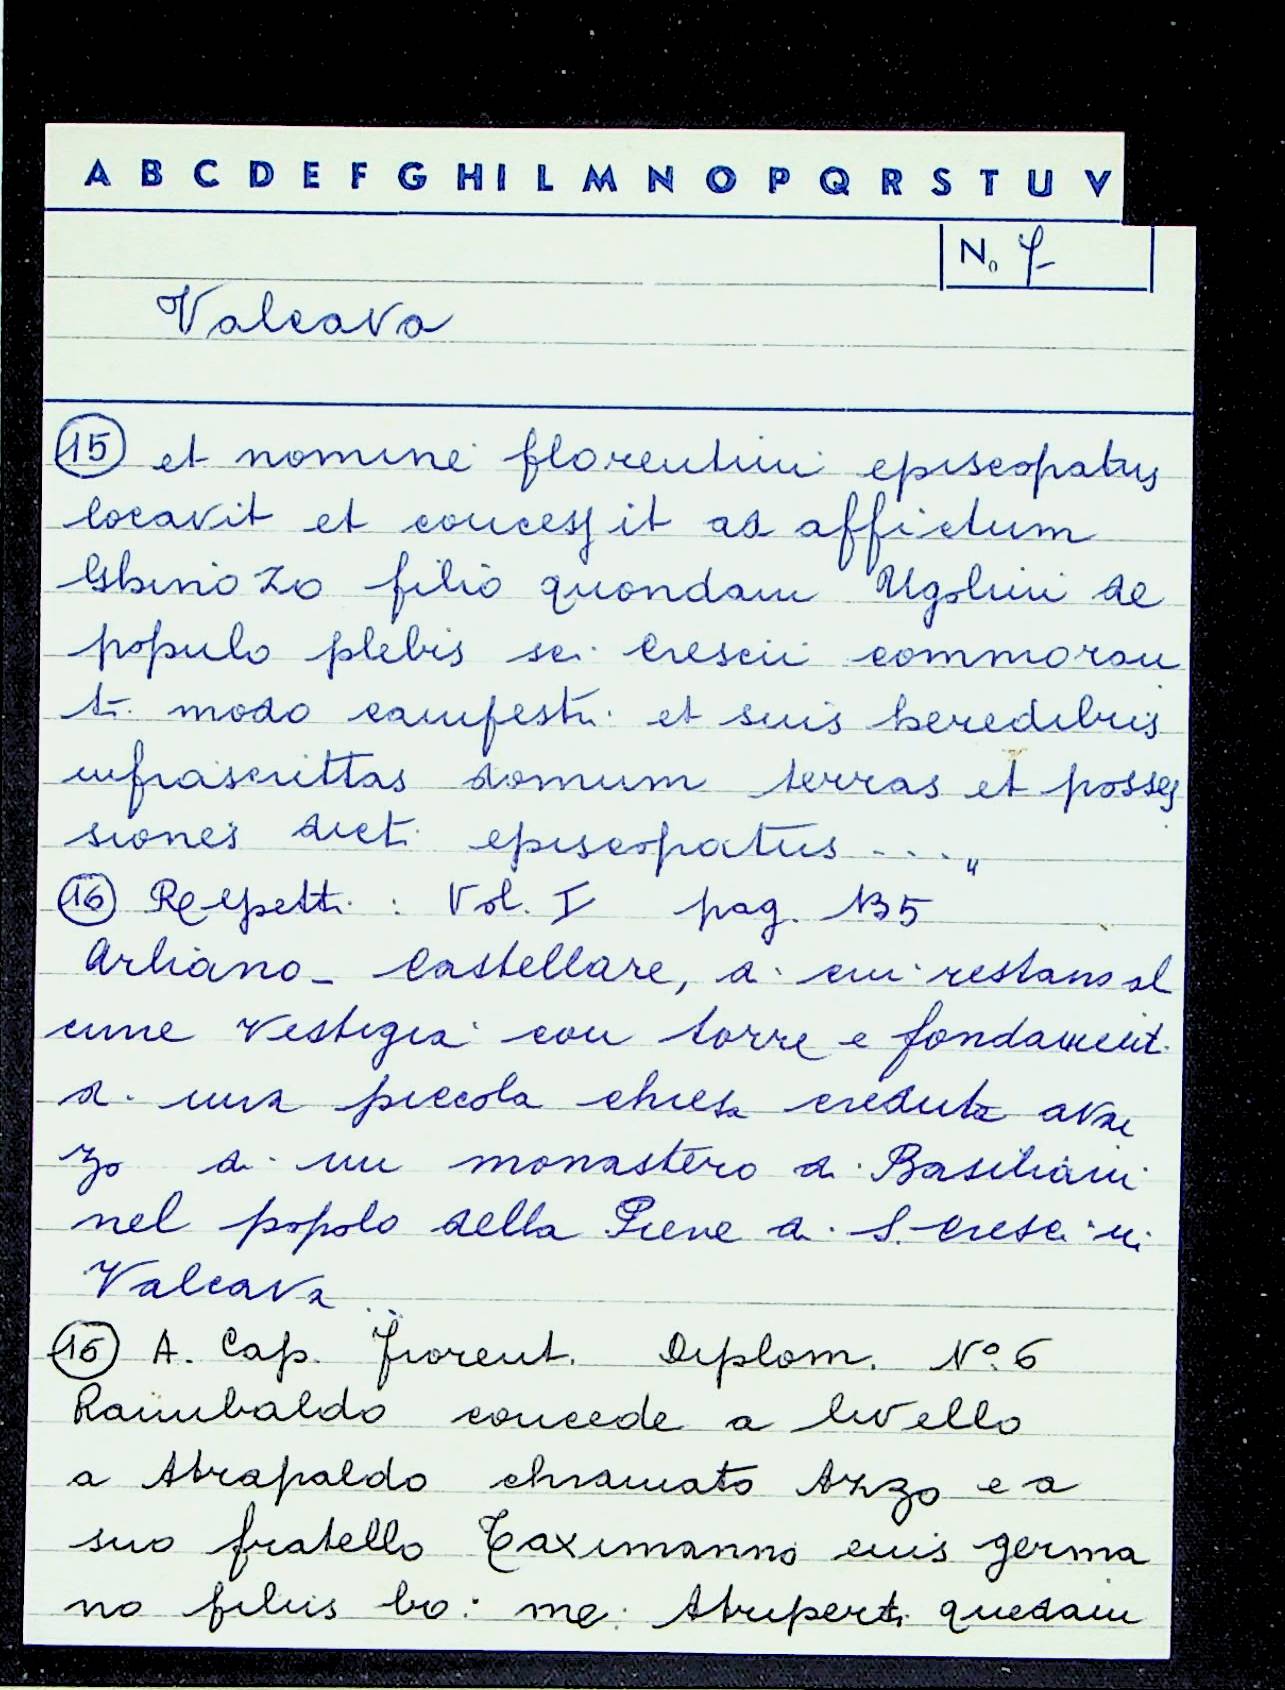 A B C D E F G H I L M N O P Q R S T U V
No 7
Valcava
15 et nomine florentini episcopatus
locavit et concessit ad affictum
Ghinozo filio quondam Ugolini de
populo plebis sci. Crescii commoran
ti. modo campestri. et suis heredibus
infrascrittas domum terras et posses
siones dicti episcopatus - - - "
16 Repetti : Vol. I pag. 135
Arliano - Castellare, di cui restano al
cune vestigia con torre e fondamenti
di una piccola chiesa creduta avan
zo di un monastero di Basiliani
nel popolo della Pieve di S. Cresci in
Valcava
16 A. Cap. Fiorent. Diplom. N° 6
Raimbaldo concede a livello
a Atrapaldo chiamato Azzo e a
suo fratello Taximanno euis germa
no filiis bo: me: Atruperti quedam